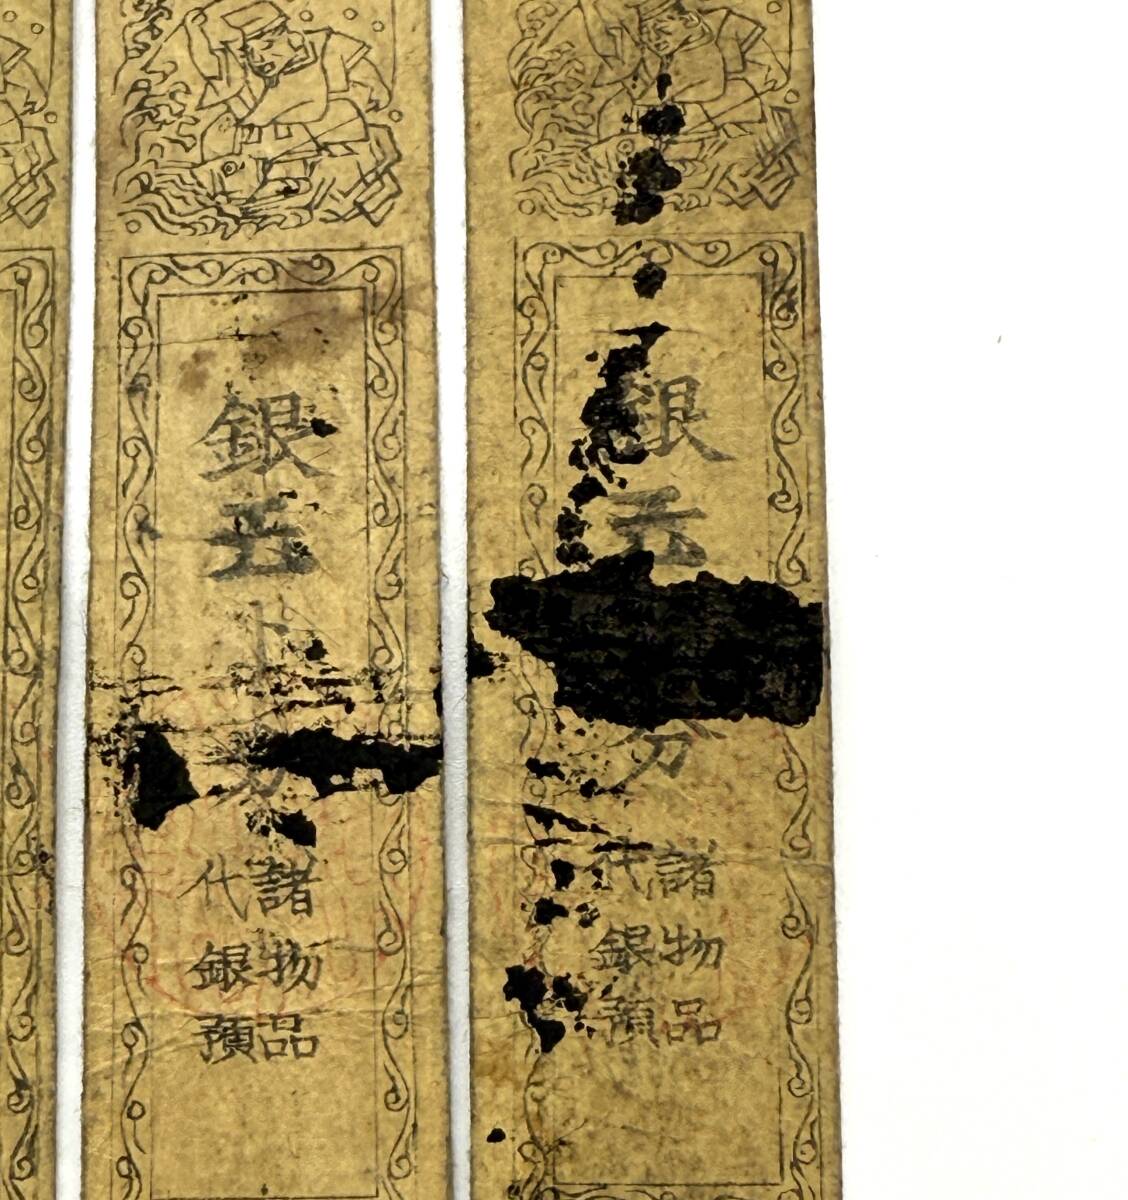 銀五分
諸物品
代銀預
銀五十
諸物品
代銀預